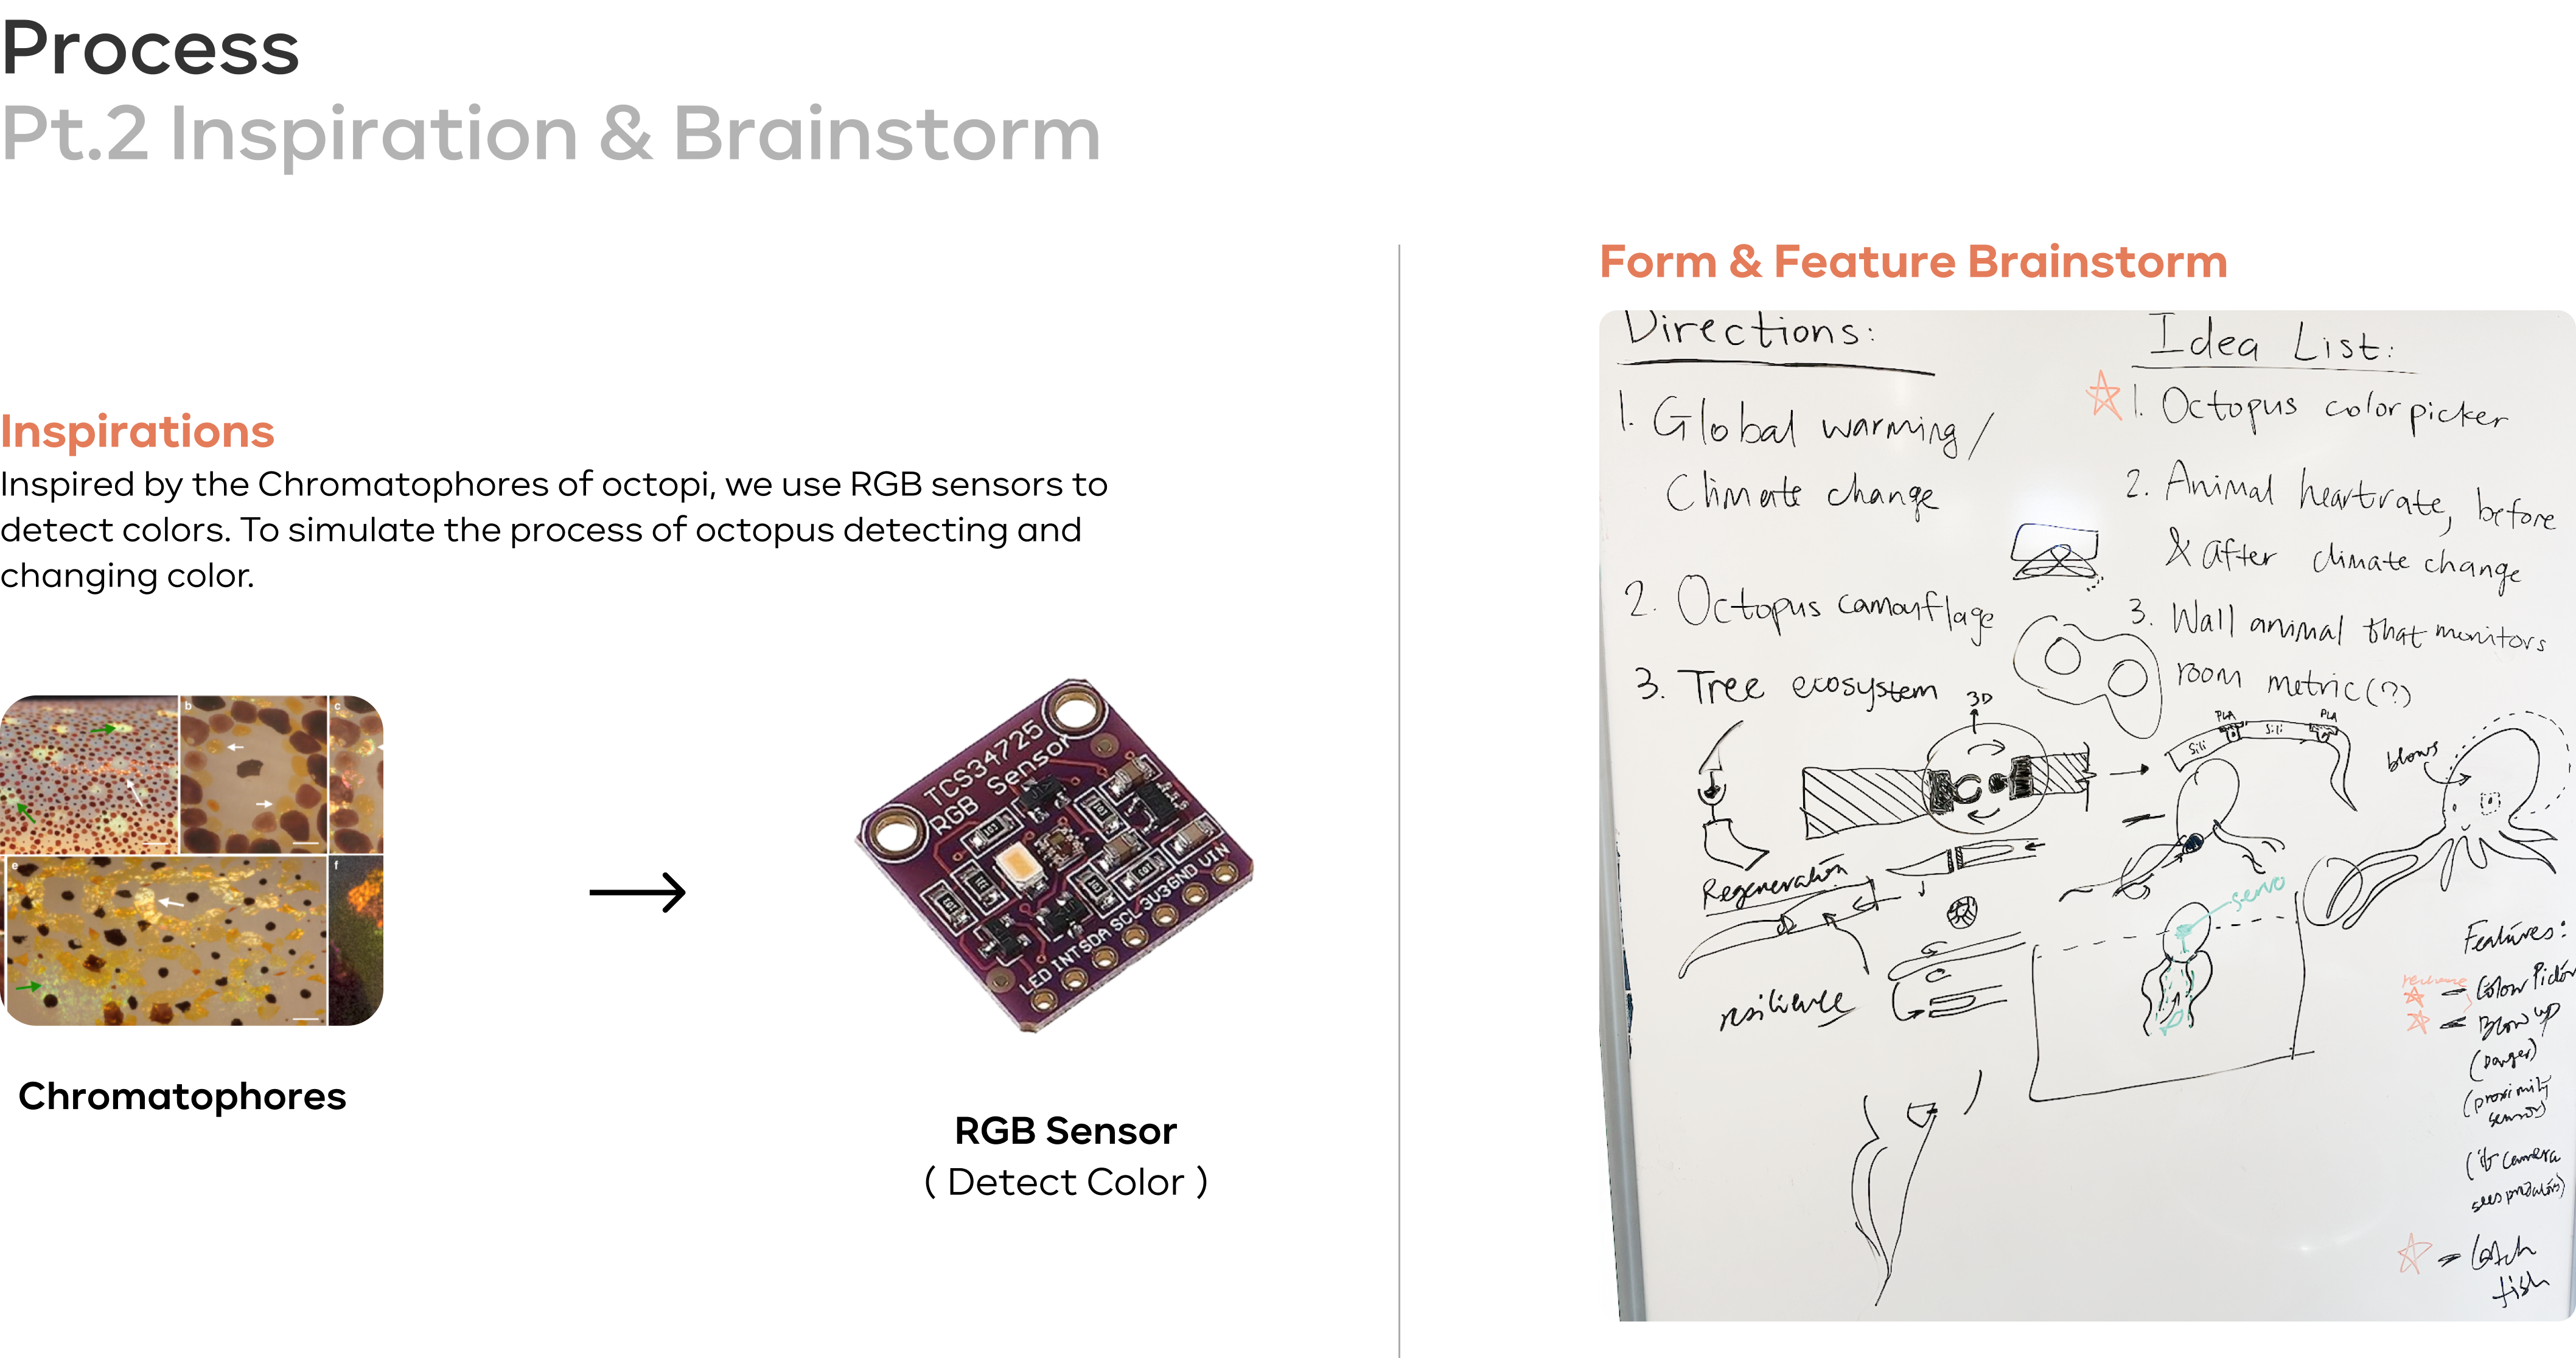 Process
Pt.2 Inspiration & Brainstorm
Inspirations
Inspired by the Chromatophores of octopi, we use RGB sensors to
detect colors. To simulate the process of octopus detecting and
changing color.
b
c
e
f
Chromatophores
TCS34725
RGB Sensor
101
101
101
101
LED INT SDA SCL 3V3 GND VIN
RGB Sensor
( Detect Color )
Form & Feature Brainstorm
Directions:
1. Global warming/
Climate change
2. Octopus camouflage
3. Tree ecosystem
Idea List:
1. Octopus color picker
2. Animal heartrate, before
& after climate change
3. Wall animal that monitors
room metric(?)
3D
PLA
PLA
Sili
Sili
blows
Regeneration
resilience
servo
Features:
- Color Picker
- Blow up
(Danger)
(proximity
sensor)
(if camera
sees predators)
- Catch
fish